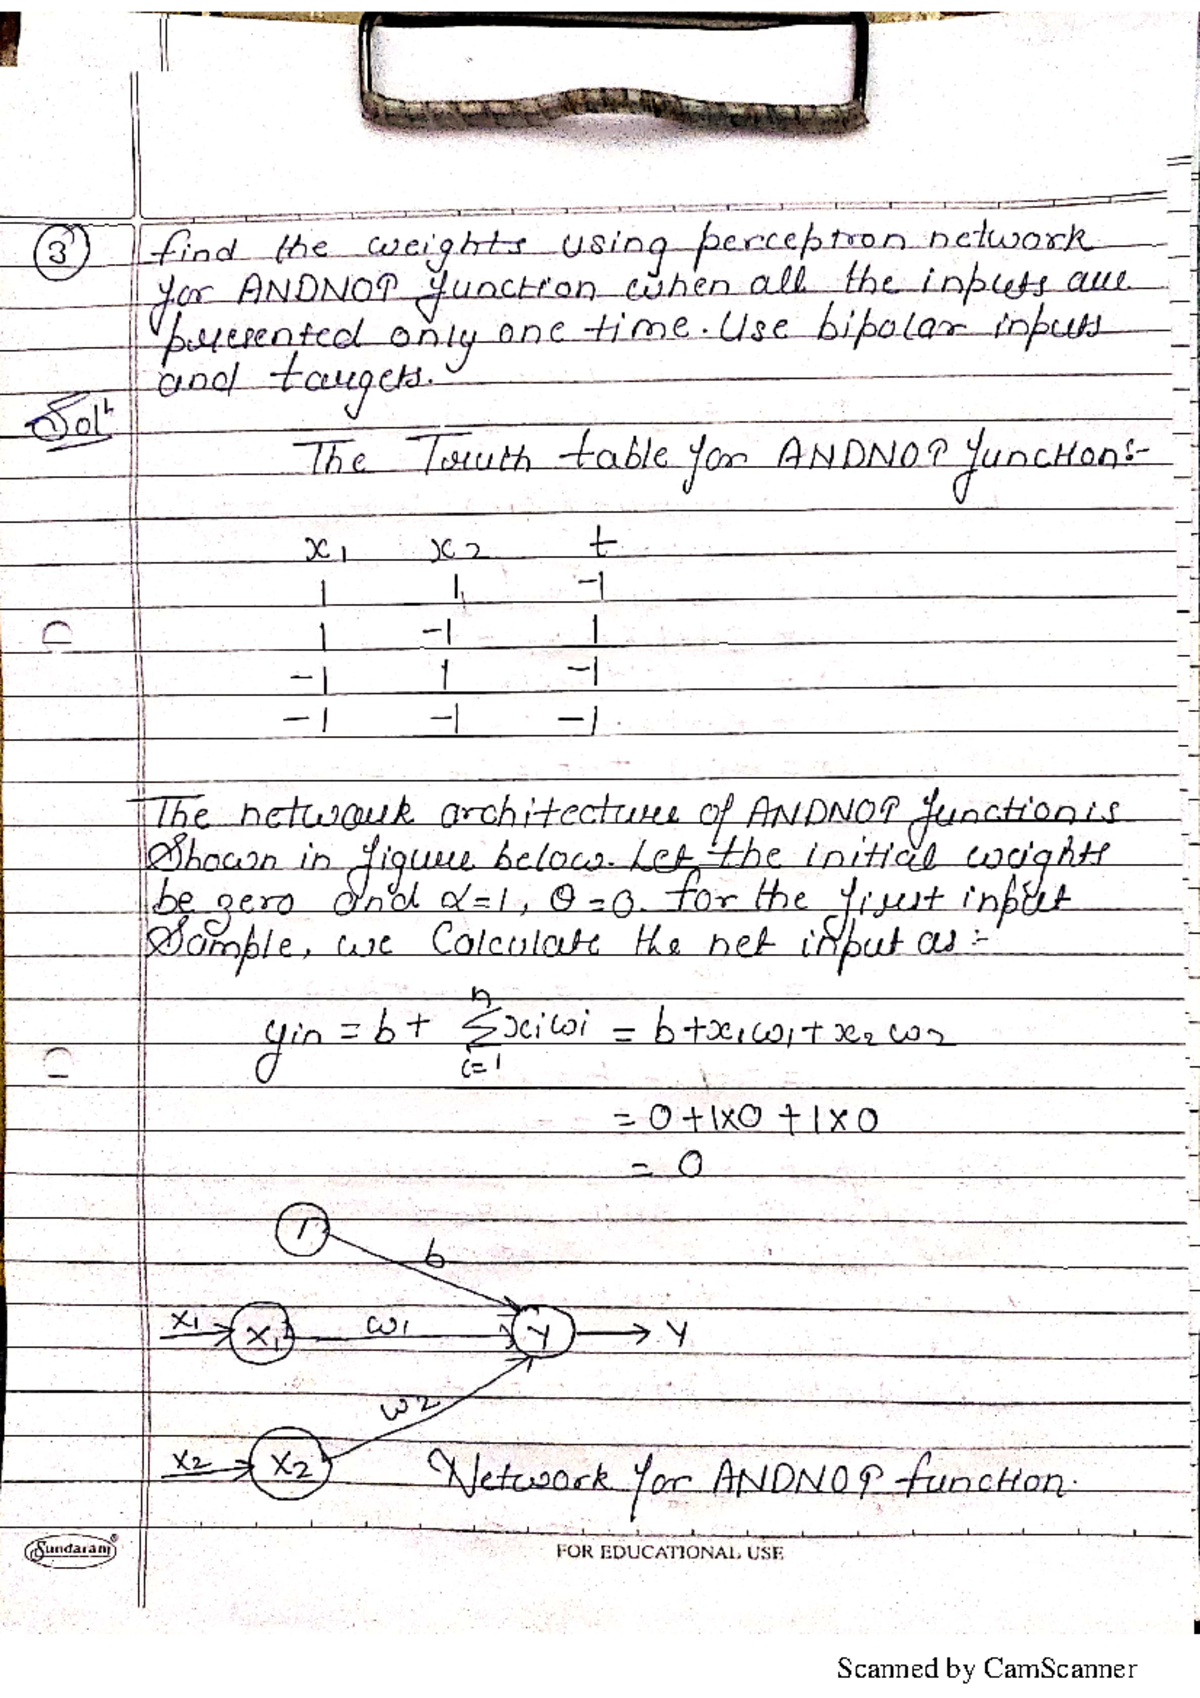 3 find the weights using perceptron network
for ANDNOT function when all the inputs are
presented only one time. Use bipolar inputs
and targets.
Solⁿ
The Truth table for ANDNOT function:-
x1 x2 t
1 1 -1
1 -1 1
-1 1 -1
-1 -1 -1
The network architecture of ANDNOT function is
Shown in figure below. Let the initial weights
be zero and α=1, θ=0. for the first input
Sample, we Calculate the net input as :-
yin = b + n∑i=1 xiwi = b+x1w1+x2w2
= 0+1×0+1×0
= 0
1
b
x1 X1 w1 Y → Y
w2
x2 X2
Network for ANDNOT function.
Sundaram
FOR EDUCATIONAL USE
Scanned by CamScanner